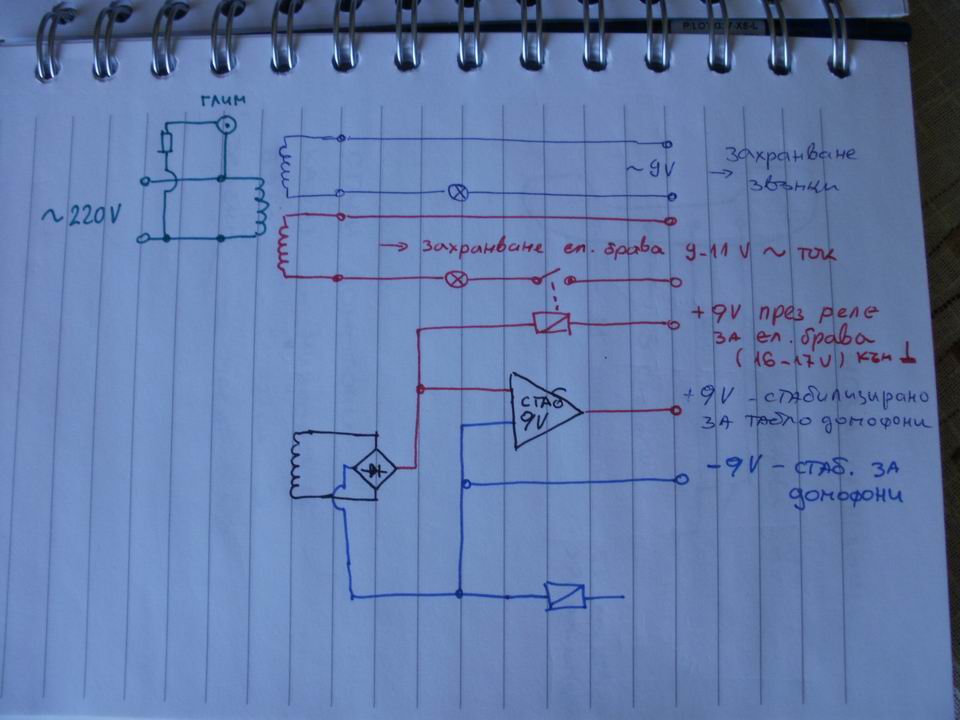 ГЛИМ
~220V
~9V
→ Захранване
звънци
→ Захранване ел. брава 9-11 V ~ ток
+9V през реле
за ел. брава
(16-17V) към ⊥
СТАБ
9V
+9V - стабилизирано
за табло домофони
-9V - стаб. за
домофони